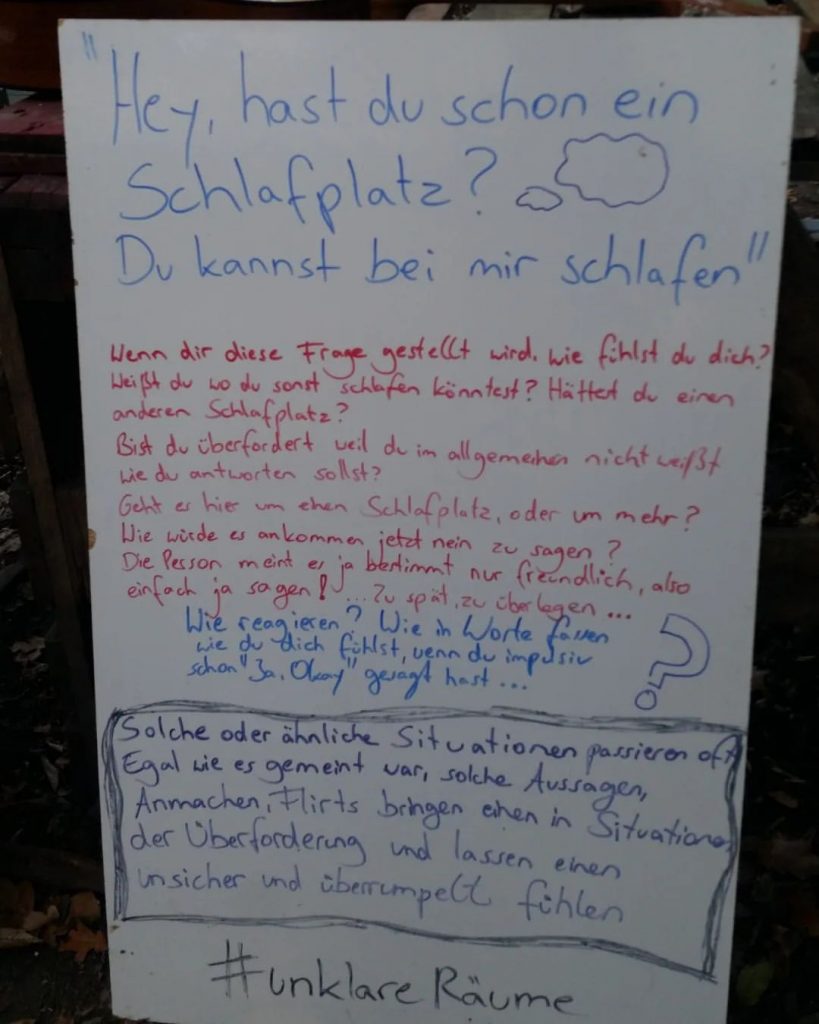 "Hey, hast du schon ein
Schlafplatz?
Du kannst bei mir schlafen"
Wenn dir diese Frage gestellt wird, wie fühlst du dich?
Weißt du wo du sonst schlafen könntest? Hättest du einen
anderen Schlafplatz?
Bist du überfordert weil du im allgemeinen nicht weißt
wie du antworten sollst?
Geht es hier um einen Schlafplatz, oder um mehr?
Wie würde es ankommen jetzt nein zu sagen?
Die Person meint es ja bestimmt nur freundlich, also
einfach ja sagen! ... Zu spät, zu überlegen ...
Wie reagieren? Wie in Worte fassen
wie du dich fühlst, wenn du impulsiv
schon "Ja, Okay" gesagt hast ...
?
Solche oder ähnliche Situationen passieren oft
Egal wie es gemeint war, solche Aussagen,
Anmachen, Flirts bringen einen in Situationen
der Überforderung und lassen einen
unsicher und überrumpelt fühlen
#unklare Räume